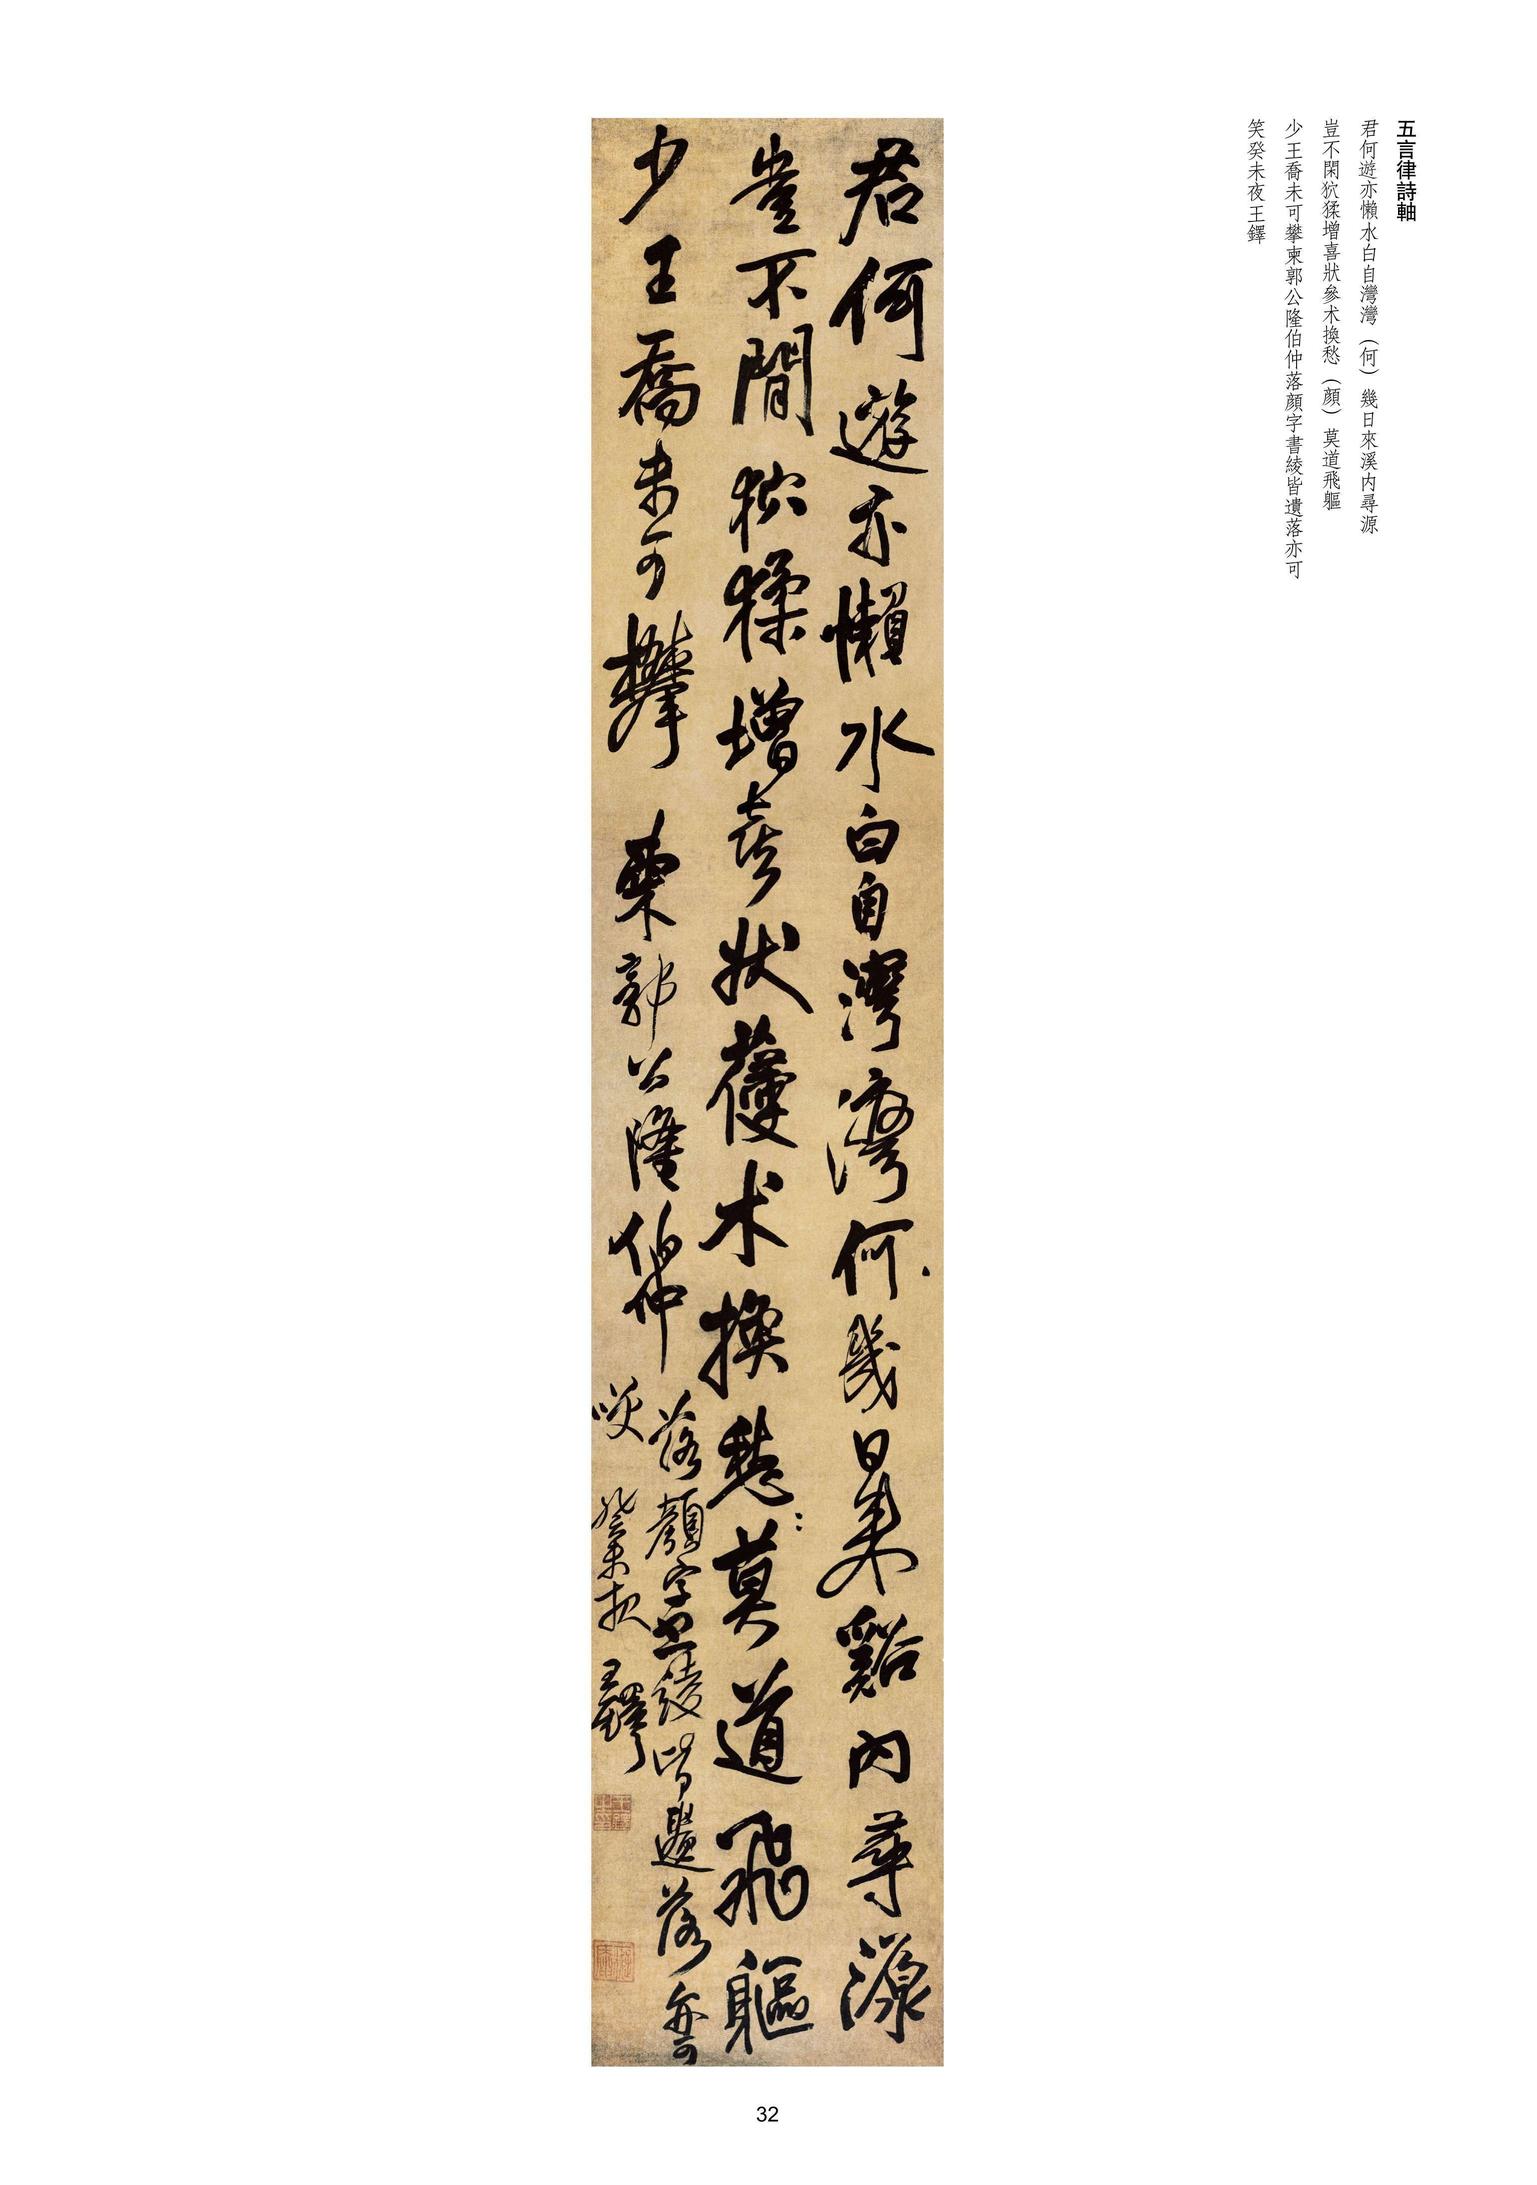 五言律詩軸
君何遊亦懶水白自灣灣（何）幾日來溪内尋源
豈不閑狖猱增喜狀參术換愁（顔）莫道飛軀
少王喬未可攀柬郭公隆伯仲落顔字書綾皆遺落亦可
笑癸未夜王鐸
君何遊亦懶水白自灣灣何幾日來谿内尋源
豈不閒狖猱增喜狀薓术換愁莫道飛軀
少王喬未可攀柬郭公隆伯仲
落顔字書綾皆遺落亦可
咲癸未夜王鐸
32